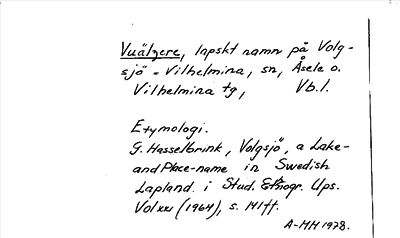 Vuälgere, lapskt namn på Volg-
sjö = Vilhelmina, sn, Åsele o.
Vilhelmina tg, Vb.l.
Etymologi.
G. Hasselbrink, Volgsjö, a Lake-
and Place-name in Swedish
Lapland. i Stud. Ethnogr. Ups.
Vol XXI (1964), s. 141 ff.
A-MH 1978.